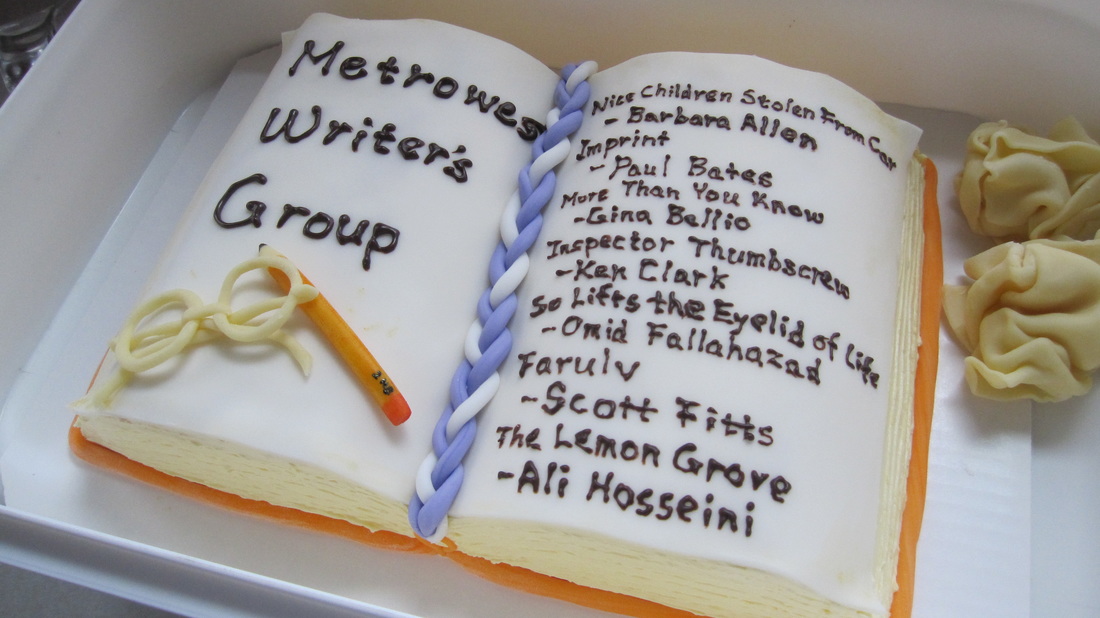 Metrowes
Writer's
Group
Nice Children Stolen From Car
- Barbara Allen
Imprint
- Paul Bates
More Than You Know
- Gina Bellio
Inspector Thumbscrew
- Ken Clark
So Lifts the Eyelid of Life
- Omid Fallahazad
Farulv
- Scott Fitts
The Lemon Grove
- Ali Hosseini